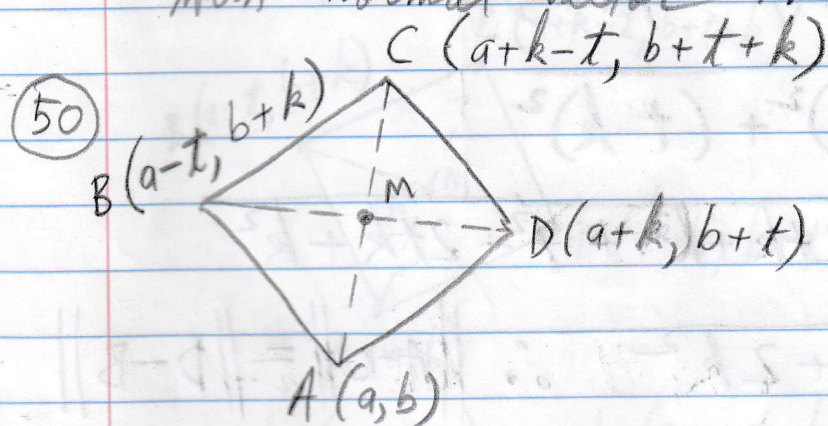 C (a+k-t, b+t+k)
50
B (a-t, b+k)
M
D (a+k, b+t)
A (a, b)